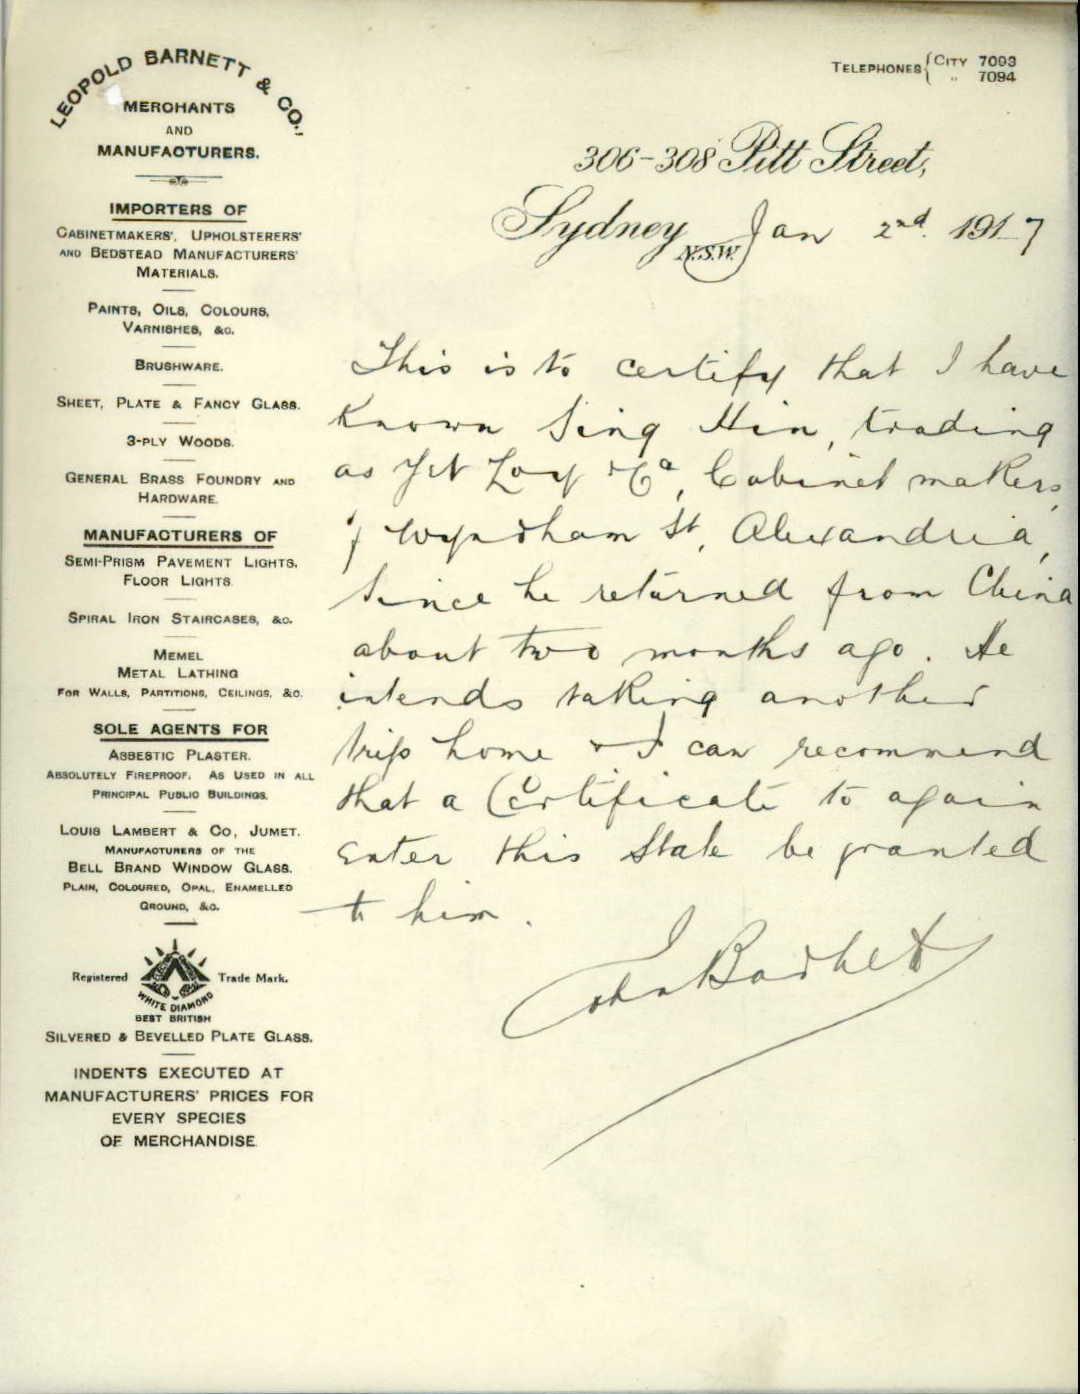 LEOPOLD BARNETT & CO.,
MERCHANTS
AND
MANUFACTURERS.
IMPORTERS OF
CABINETMAKERS', UPHOLSTERERS'
AND BEDSTEAD MANUFACTURERS'
MATERIALS.
PAINTS, OILS, COLOURS,
VARNISHES, &C.
BRUSHWARE.
SHEET, PLATE & FANCY GLASS.
3-PLY WOODS.
GENERAL BRASS FOUNDRY AND
HARDWARE.
MANUFACTURERS OF
SEMI-PRISM PAVEMENT LIGHTS.
FLOOR LIGHTS
SPIRAL IRON STAIRCASES, &C.
MEMEL
METAL LATHING
FOR WALLS, PARTITIONS, CEILINGS, &C.
SOLE AGENTS FOR
ASBESTIC PLASTER.
ABSOLUTELY FIREPROOF. AS USED IN ALL
PRINCIPAL PUBLIC BUILDINGS.
LOUIS LAMBERT & CO, JUMET.
MANUFACTURERS OF THE
BELL BRAND WINDOW GLASS.
PLAIN, COLOURED, OPAL, ENAMELLED
GROUND, &C.
Registered Trade Mark.
WHITE DIAMOND
BEST BRITISH
SILVERED & BEVELLED PLATE GLASS.
INDENTS EXECUTED AT
MANUFACTURERS' PRICES FOR
EVERY SPECIES
OF MERCHANDISE.
TELEPHONES { CITY 7093
" 7094
306-308 Pitt Street,
Sydney Jan 2nd. 1917
N.S.W.
This is to certify that I have
known Sing Hin, trading
as Yet Loy & Co, Cabinet makers,
of Wyndham St, Alexandria,
since he returned from China
about two months ago. He
intends taking another
trip home & I can recommend
that a Certificate to again
enter this State be granted
to him.